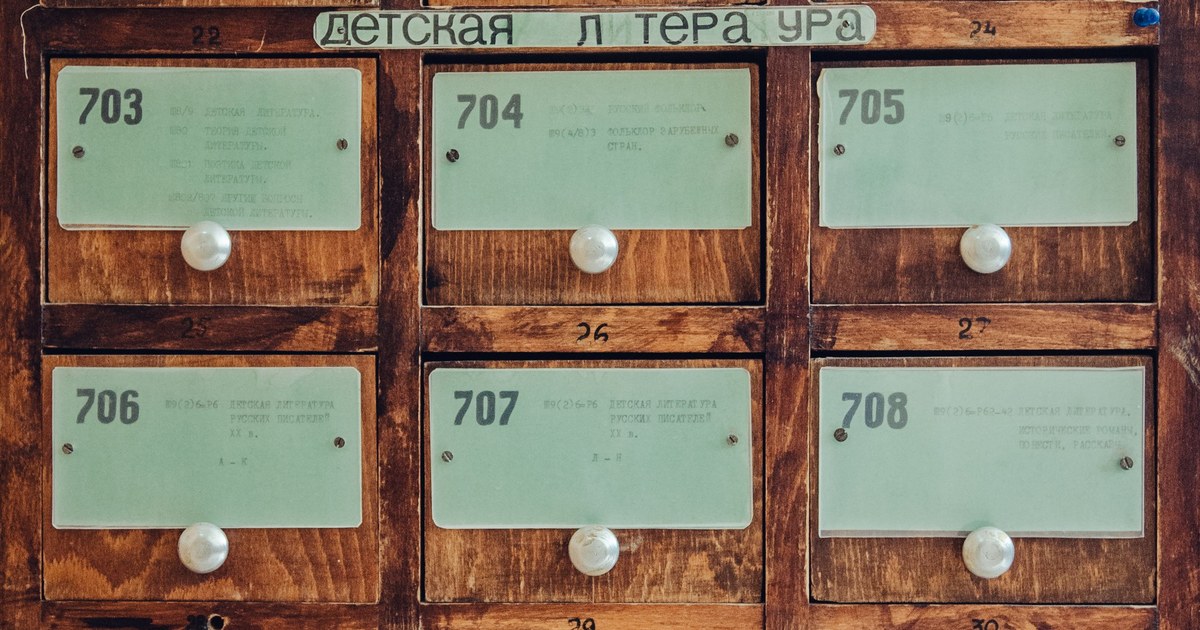 детская л тера ура
22
24
703
ДЕТСКАЯ ЛИТЕРАТУРА.
ТЕОРИЯ ДЕТСКОЙ
ЛИТЕРАТУРЫ.
ПОЭТИКА ДЕТСКОЙ
ЛИТЕРАТУРЫ.
ДРУГИЕ ВОПРОСЫ
ДЕТСКОЙ ЛИТЕРАТУРЫ.
704
РУССКИЙ ФОЛЬКЛОР.
Ш9(4/8)3 ФОЛЬКЛОР ЗАРУБЕЖНЫХ
СТРАН.
705
ДЕТСКАЯ ЛИТЕРАТУРА
ПИСАТЕЛЕЙ.
26
27
706
Ш9(2)6=Р6 ДЕТСКАЯ ЛИТЕРАТУРА
РУССКИХ ПИСАТЕЛЕЙ
XX в.
А - К
707
Ш9(2)6=Р6 ДЕТСКАЯ ЛИТЕРАТУРА
РУССКИХ ПИСАТЕЛЕЙ
XX в.
Л - Н
708
ДЕТСКАЯ ЛИТЕРАТУРА.
ИСТОРИЧЕСКИЕ РОМАНЫ,
ПОВЕСТИ, РАССКАЗЫ
29
30